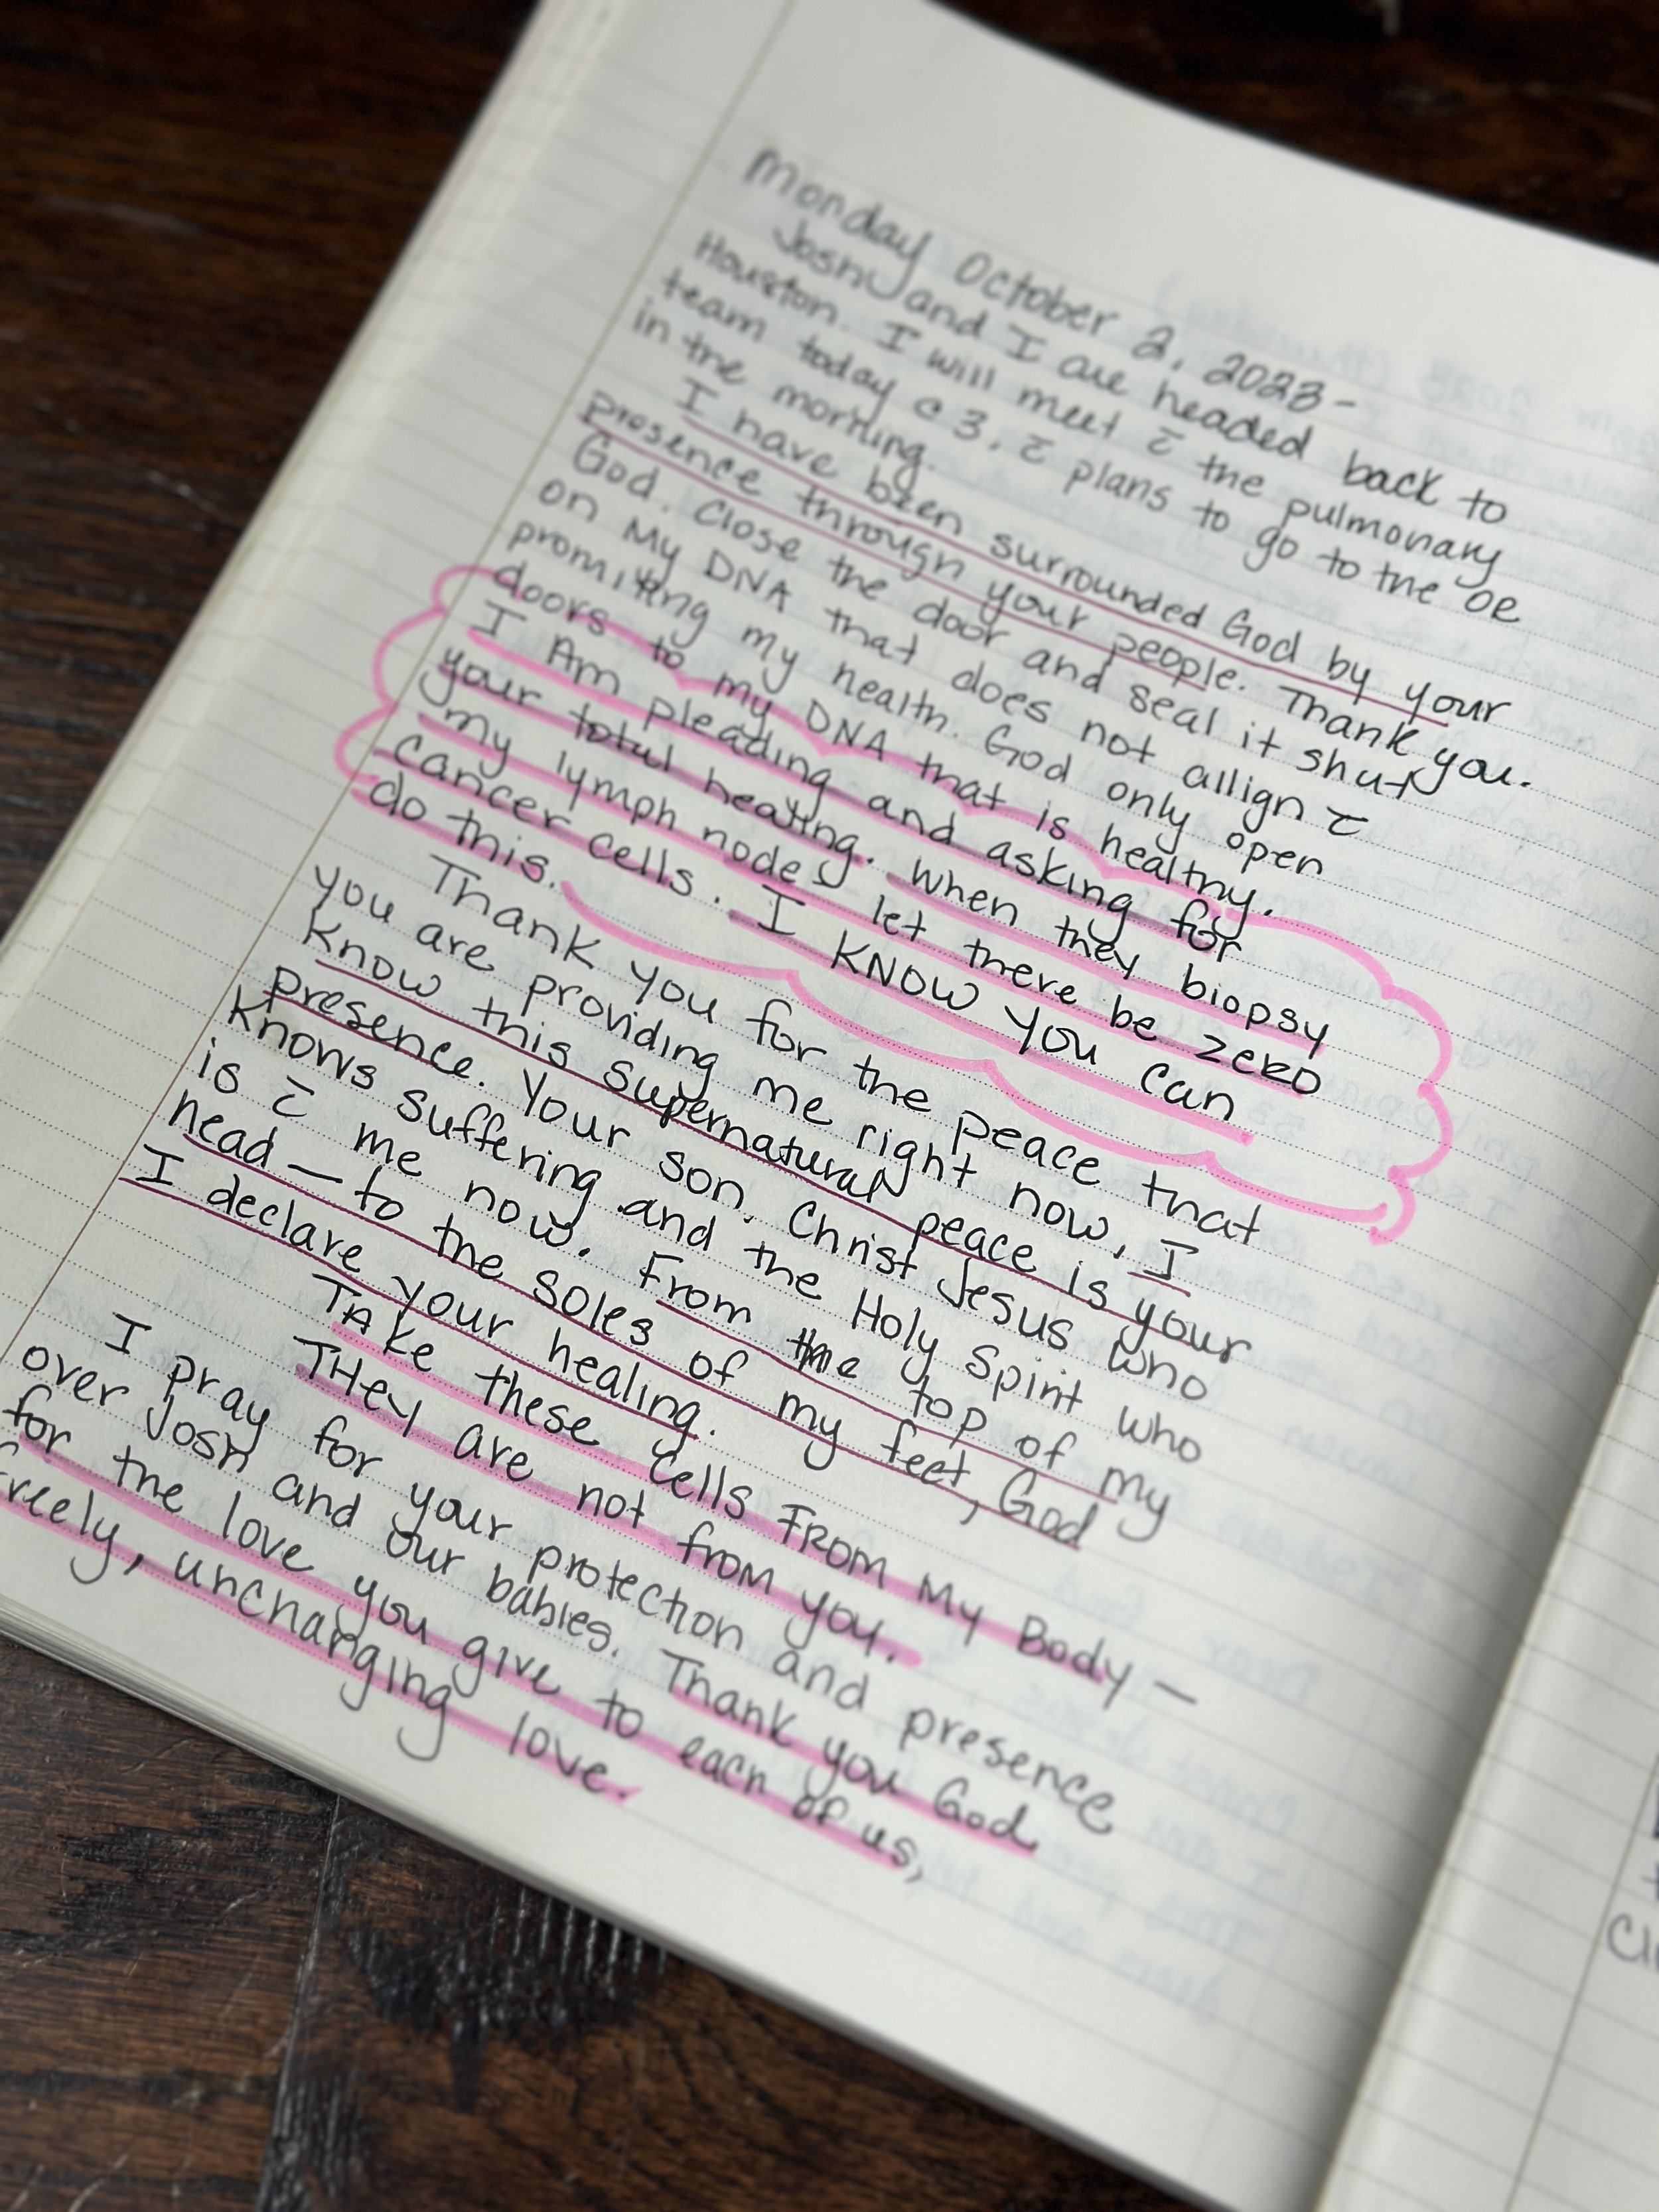 Monday October 2, 2023-
Josh and I are headed back to
Houston. I will meet c̄ the pulmonary
team today @ 3. c̄ plans to go to the OR
in the morning.
I have been surrounded God by your
presence through your people. Thank you.
God. Close the door and seal it shut
on My DNA that does not allign c̄
promiting my health. God only open
doors to my DNA that is healthy.
I Am pleading and asking for
your total healing. When they biopsy
my lymph nodes let there be zero
cancer cells. I KNOW You can
do this.
Thank you for the peace that
you are providing me right now, I
know this supernatural peace is your
presence. Your son. Christ Jesus who
knows suffering and the Holy Spirit who
is c̄ me now. From the top of my
head — to the soles of my feet, God
I declare your healing.
TAke these cells FROM My Body —
THey are not from you.
I pray for your protection and presence
over Josh and our babies. Thank you God
for the love you give to each of us,
freely, unchanging love.